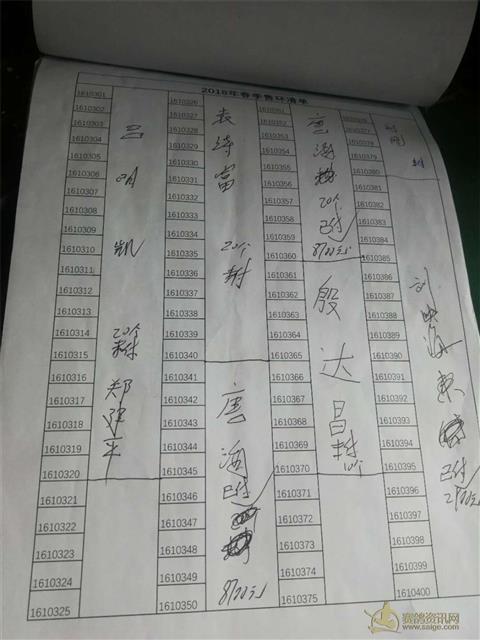 2018年春季售环清单
1610301
1610302
1610303
1610304
1610305
1610306
1610307
1610308
1610309
1610310
1610311
1610312
1610313
1610314
1610315
1610316
1610317
1610318
1610319
1610320
1610321
1610322
1610323
1610324
1610325
吕
明
凯
20个
郑
平
1610326
1610327
1610328
1610329
1610330
1610331
1610332
1610333
1610334
1610335
1610336
1610337
1610338
1610339
1610340
1610341
1610342
1610343
1610344
1610345
1610346
1610347
1610348
1610349
1610350
袁
富
20个
唐
海
已付
1610351
1610352
1610353
1610354
1610355
1610356
1610357
1610358
1610359
1610360
1610361
1610362
1610363
1610364
1610365
1610366
1610367
1610368
1610369
1610370
1610371
1610372
1610373
1610374
1610375
唐
海
20个
已付
殷
达
昌
1610376
1610377
1610378
1610379
1610380
1610381
1610382
1610383
1610384
1610385
1610386
1610387
1610388
1610389
1610390
1610391
1610392
1610393
1610394
1610395
1610396
1610397
1610398
1610399
1610400
刘
海
东
已付
赛鸽资讯网
www.saige.com